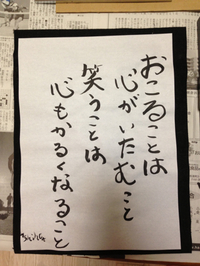 おこることは
心がいたむこと
笑うことは
心もかるくなること